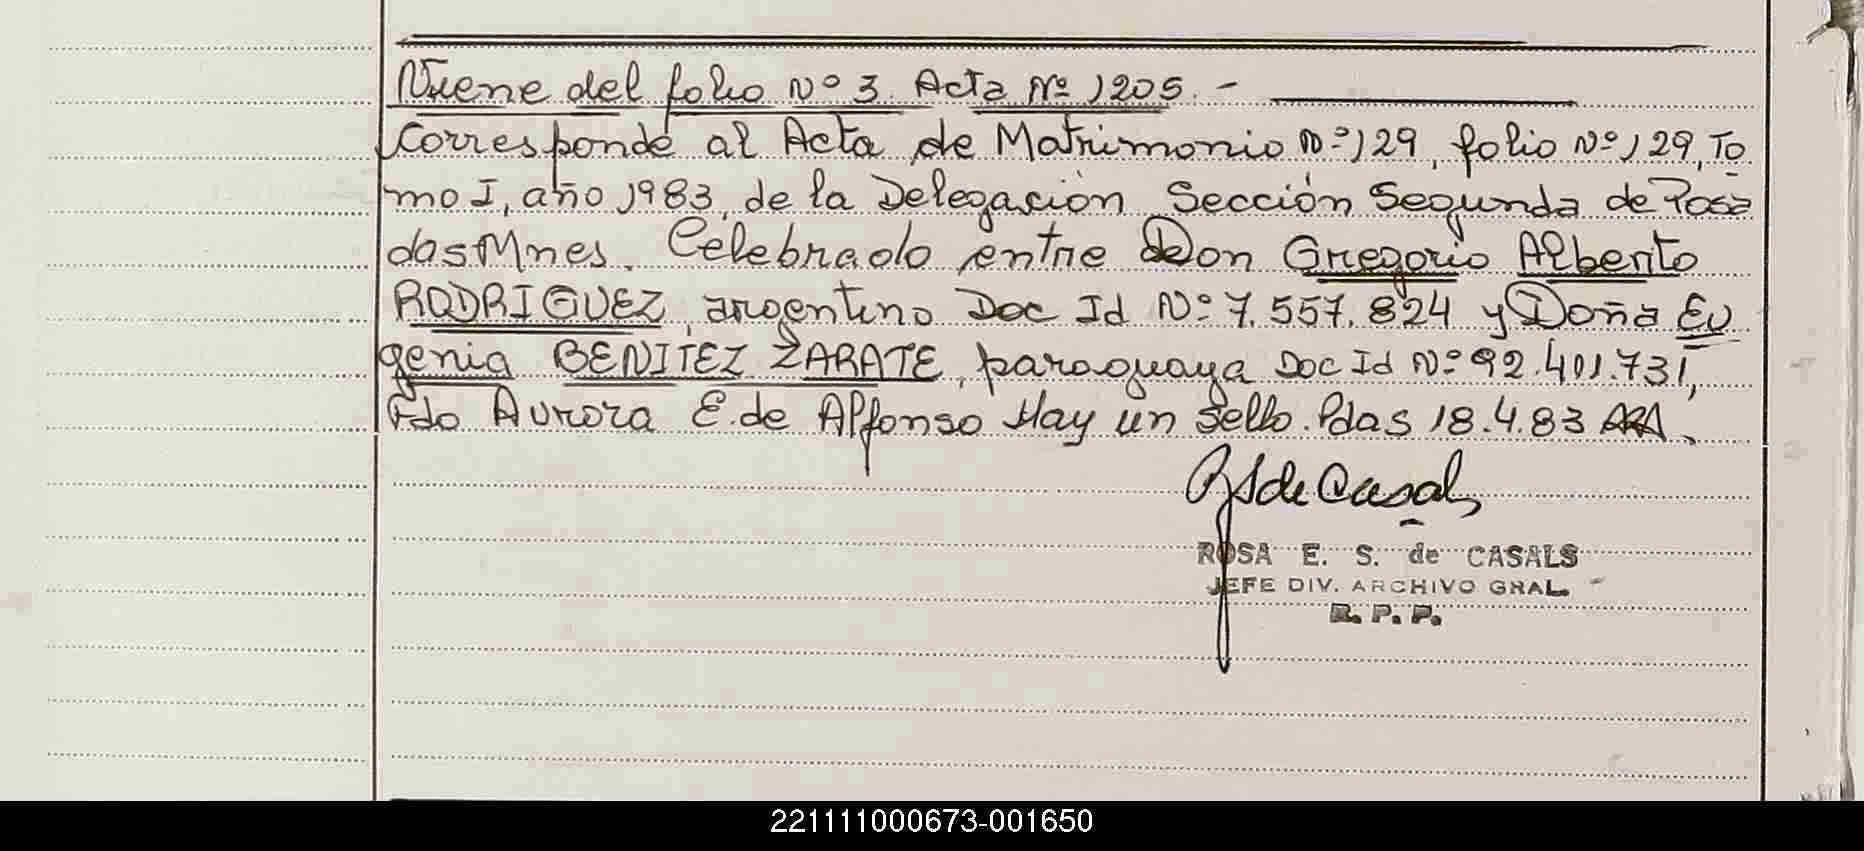 Viene del folio Nº 3. Acta Nº 1205. -
Corresponde al Acta de Matrimonio Nº 129, folio Nº 129, To
mo I, año 1983, de la Delegación Sección Segunda de Posa
das Mnes. Celebrado entre Don Gregorio Alberto
RODRIGUEZ, argentino Doc Id Nº 7.557.824 y Doña Eu
genia BENITEZ ZARATE, paraguaya Doc Id Nº 92.401.731,
Fdo Aurora E. de Alfonso Hay un sello. Pdas 18.4.83
de Casals
ROSA E. S. de CASALS
JEFE DIV. ARCHIVO GRAL.
R. P. P.
221111000673-001650